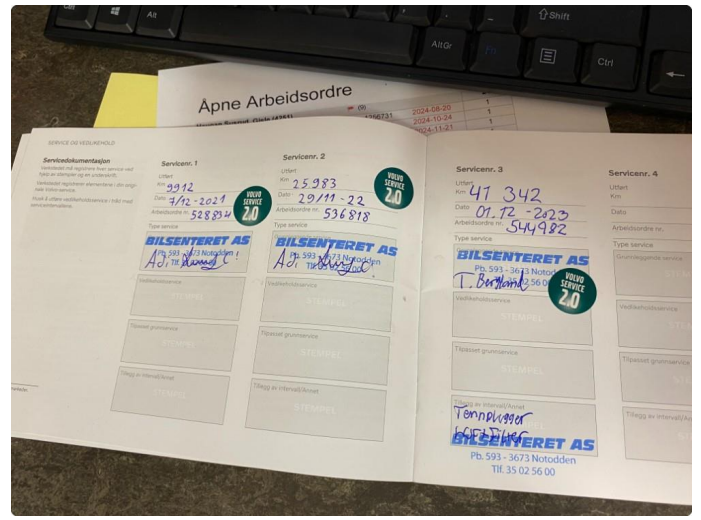 Ctrl
Alt
AltGr
Fn
Shift
Ctrl
Åpne Arbeidsordre
(9)
2024-08-20
1
2024-10-24
1
2024-11-21
1
SERVICE OG VEDLIKEHOLD
Servicedokumentasjon
Servicenr. 1
Utført
Km 9912
Dato 7/12-2021
Arbeidsordre nr. 528894
VOLVO
SERVICE
2.0
Type service
BILSENTERET AS
Pb. 593 - 3673 Notodden
Tlf. 35 02 56 00
Vedlikeholdsservice
STEMPEL
Tilpasset grunnservice
STEMPEL
Tillegg av intervall/Annet
STEMPEL
Servicenr. 2
Utført
Km 25.983
Dato 29/11-22
Arbeidsordre nr. 536818
VOLVO
SERVICE
2.0
Type service
BILSENTERET AS
Pb. 593 - 3673 Notodden
Tlf. 35 02 56 00
Vedlikeholdsservice
STEMPEL
Tilpasset grunnservice
STEMPEL
Tillegg av intervall/Annet
STEMPEL
Servicenr. 3
Utført
Km 41 342
Dato 01.12-2023
Arbeidsordre nr. 544982
Type service
BILSENTERET AS
Pb. 593 - 3673 Notodden
35 02 56 00
T. Bergland
VOLVO
SERVICE
2.0
Vedlikeholdsservice
STEMPEL
Tilpasset grunnservice
STEMPEL
Tillegg av intervall/Annet
Tennplugger
Luftfilter
BILSENTERET AS
Pb. 593 - 3673 Notodden
Tlf. 35 02 56 00
Servicenr. 4
Utført
Km
Dato
Arbeidsordre nr.
Type service
Grunnleggende service
Vedlikeholdsservice
STEM
Tilpasset grunnservice
STEM
Tillegg av intervall/Annet
STEM